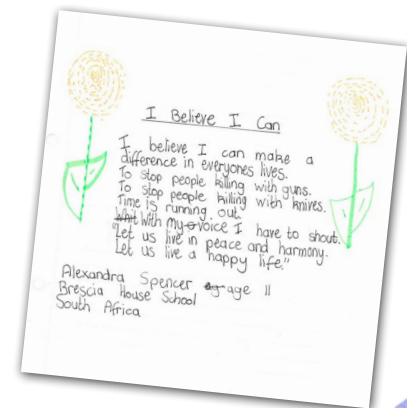 I Believe I Can
I believe I can make a
difference in everyones lives.
To stop people killing with guns.
To stop people killing with knives.
Time is running out.
With my voice I have to shout.
"Let us live in peace and harmony.
Let us live a happy life."
Alexandra Spencer age 11
Brescia House School
South Africa